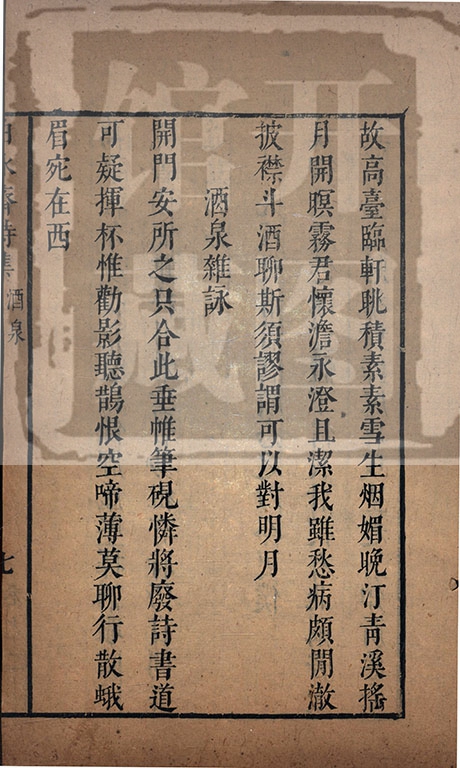 故高臺臨軒眺積素素雪生烟媚晚汀青溪搖
月開暝霧君懷澹永澄且潔我雖愁病頗閒澈
披襟斗酒聊斯須謬謂可以對明月
酒泉雜詠
開門安所之只合此垂帷筆硯憐將廢詩書道
可疑揮杯惟勸影聽鵲恨空啼薄莫聊行散蛾
眉宛在西
酒泉
七